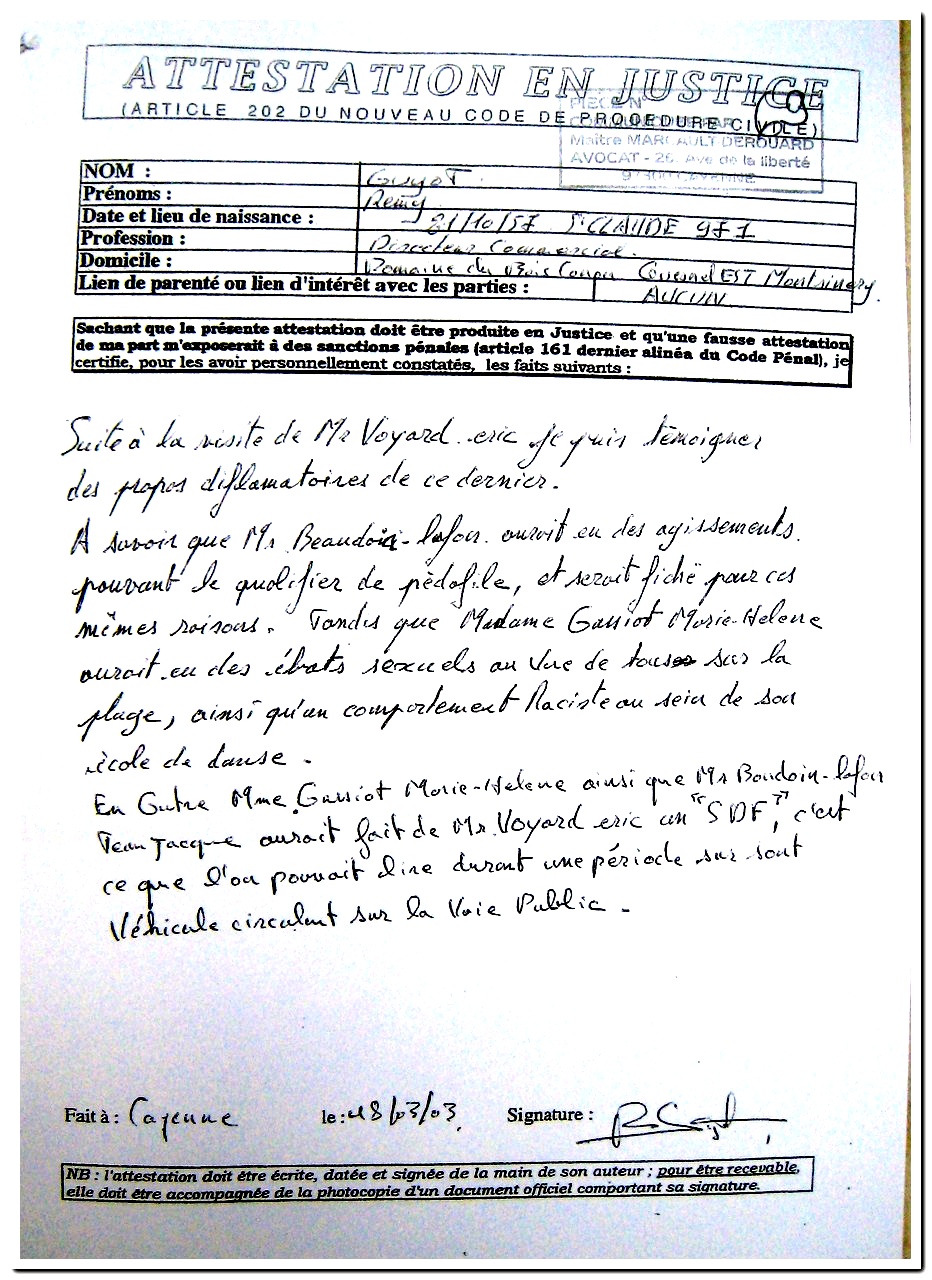 ATTESTATION EN JUSTICE
(ARTICLE 202 DU NOUVEAU CODE DE PROCEDURE CIVILE)
9
PIECE N°
COMMUNIQUEE PAR
Maître MARCAULT DEROUARD
AVOCAT - 26, Ave de la liberté
97300 CAYENNE
NOM : Guyot
Prénoms : Remy
Date et lieu de naissance : 21/10/57 St CLAUDE 971
Profession : Directeur Commercial.
Domicile : Domaine du Bois Coupu EST Montsinery.
Lien de parenté ou lien d'intérêt avec les parties : AUCUN
Sachant que la présente attestation doit être produite en Justice et qu'une fausse attestation
de ma part m'exposerait à des sanctions pénales (article 161 dernier alinéa du Code Pénal), je
certifie, pour les avoir personnellement constatés, les faits suivants :
Suite à la visite de Mr Voyard eric je puis témoigner
des propos diflamatoires de ce dernier.
A savoir que Mr Beaudoin-lafon auroit eu des agissements
pouvant le qualifier de pédofile, et seroit fiché pour ces
mêmes raisons. Tandis que Madame Gassiot Marie-Helene
auroit eu des ébats sexuels au Vue de tous sur la
plage, ainsi qu'un comportement Raciste au sein de son
école de danse.
En Outre Mme Gassiot Marie-Helene ainsi que Mr Baudoin-lafon
Jean Jacque aurait fait de Mr Voyard eric un "SDF", c'est
ce que l'on pouvait lire durant une période sur sont
Véhicule circulant sur la Voie Public.
Fait à : Cayenne le : 18/03/03. Signature :
NB : l'attestation doit être écrite, datée et signée de la main de son auteur ; pour être recevable,
elle doit être accompagnée de la photocopie d'un document officiel comportant sa signature.